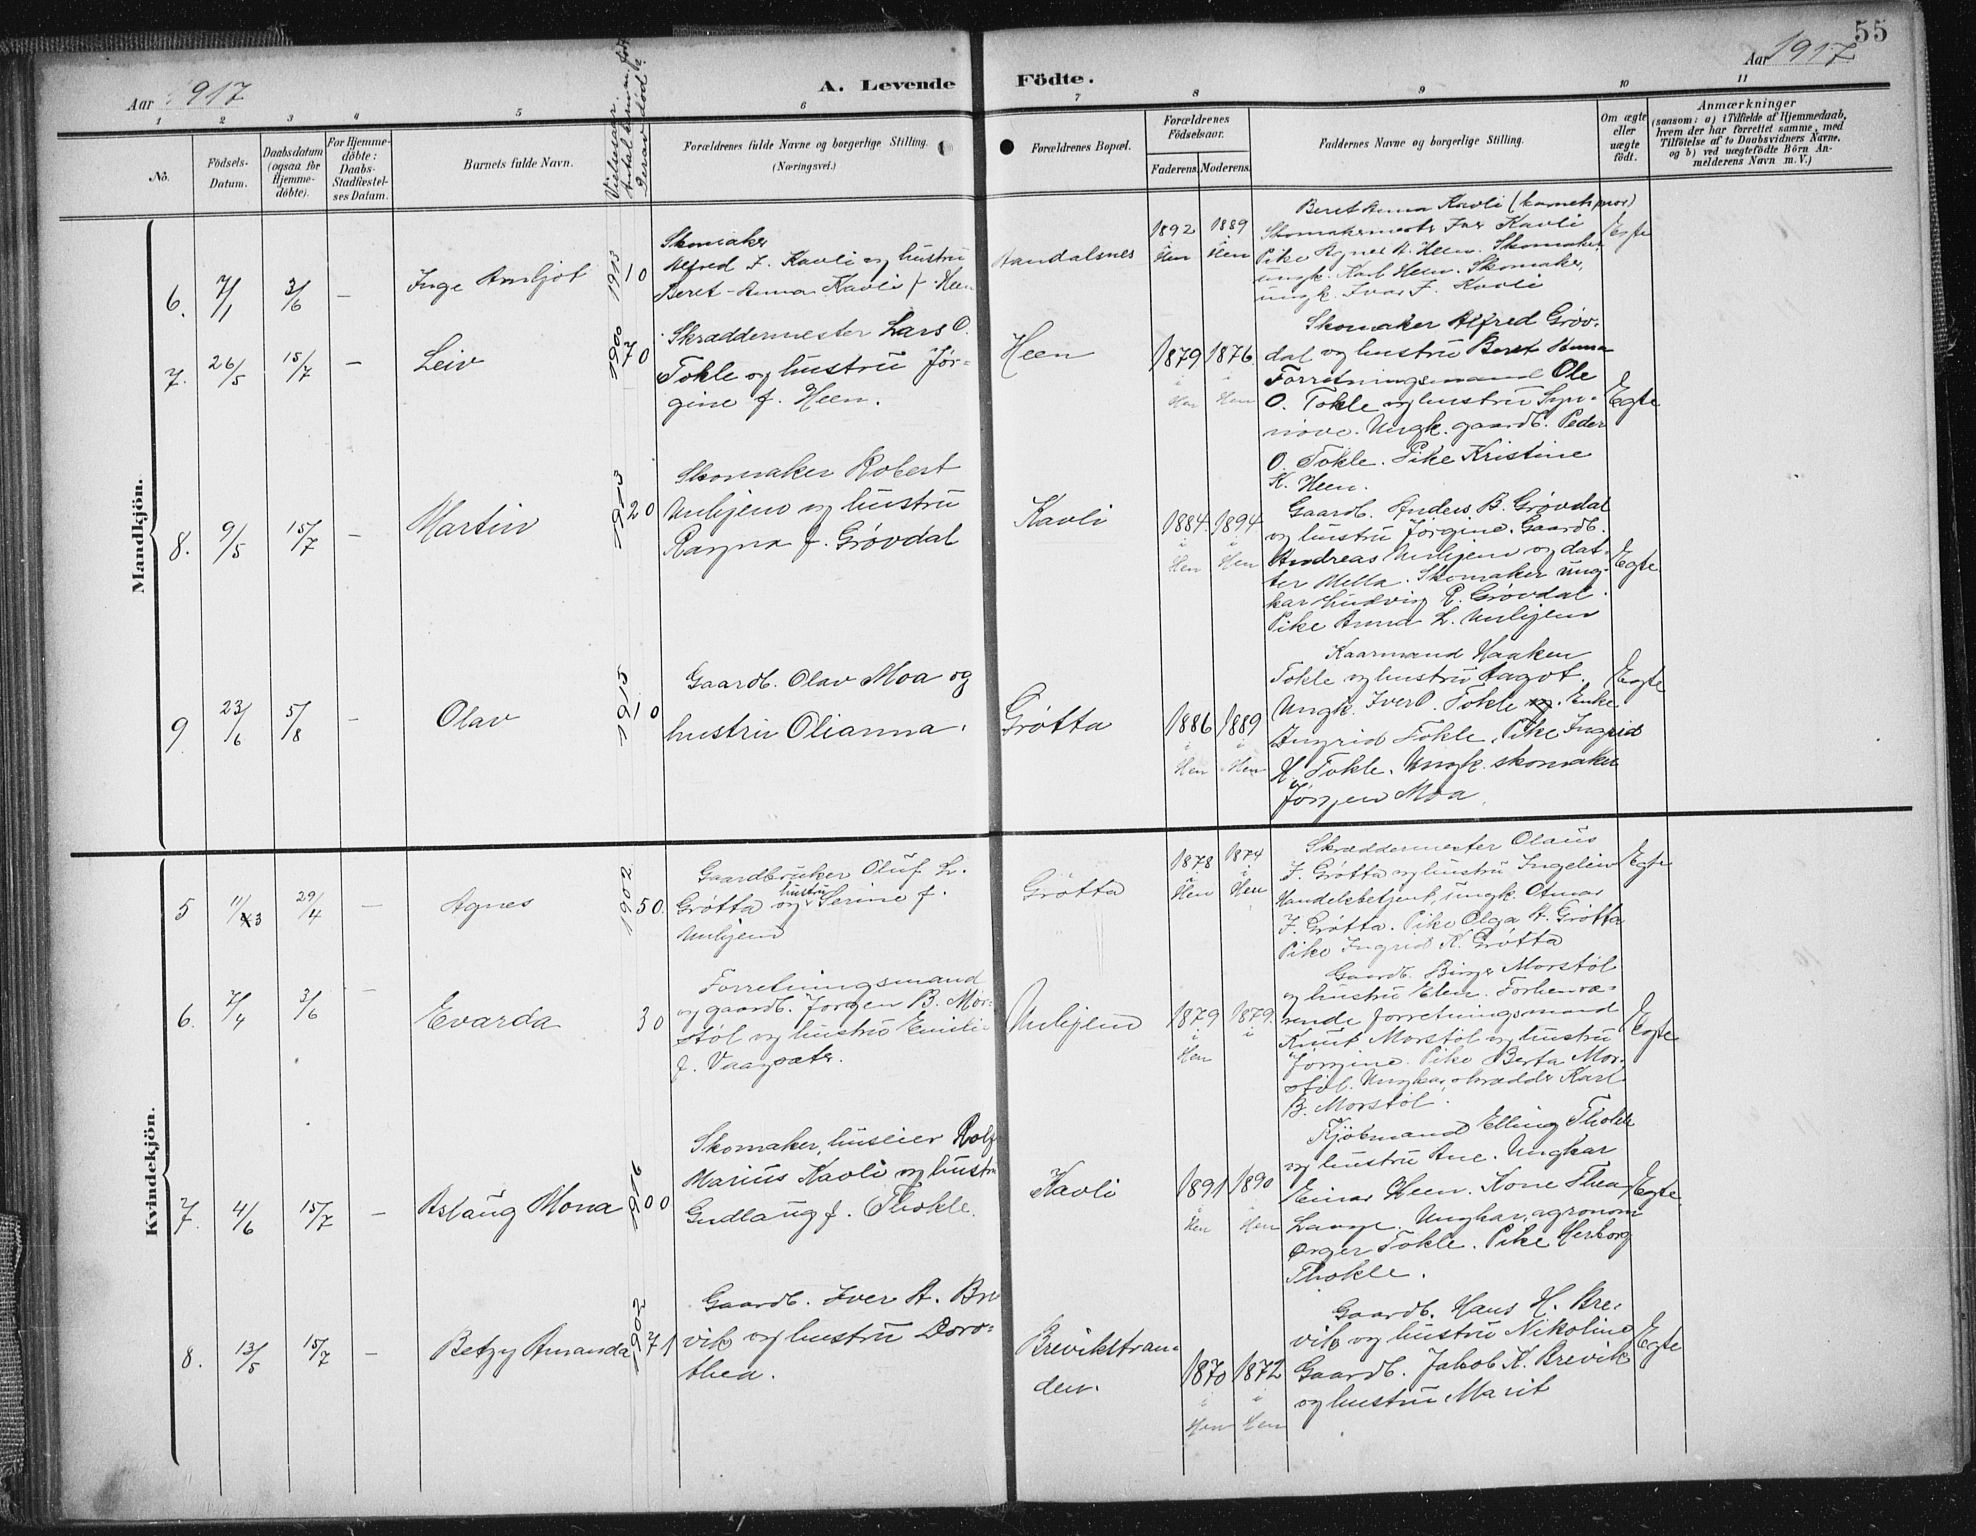 55
Aar 1917
A. Levende Födte.
Aar 1917
1 2 3 4 5 6 7 8 9 10 11
No.
Födsels-
Datum.
Daabsdatum
(ogsaa for
Hjemme-
döbte).
For Hjemme-
döbte:
Daabs-
Stadfæstel-
ses Datum.
Barnets fulde Navn.
Vielsesaar
Forældrenes fulde Navne og borgerlige Stilling.
(Næringsvei.)
Forældrenes Bopæl.
Forældrenes
Födselsaar.
Faderens. Moderens.
Faddernes Navne og borgerlige Stilling.
Om ægte
eller
uægte
födt.
Anmærkninger
(saasom: a) i Tilfælde af Hjemmedaab,
hvem der har forrettet samme, med
Tilföielse af to Daabsvidners Navne.
og b) ved uægtefödte Börn An-
melderens Navn m. V.)
Mandkjön.
6. 7/1 3/6 — Inge Arnljot 1913 10
Skomaker
Alfred I. Kavli og hustru
Beret-Anna Kavli f. Heen
Aandalsnes
1892 i Hen 1889 i Hen
Beret Anna Kavli (barnets mor)
Skomakermester Iver Kavli
Pike Agnes A. Heen. Skomaker,
ungk. Karl Heen. Skomaker,
ungk. Ivar I. Kavli
Egte
7. 26/5 15/7 — Leiv 1900 70
Skræddermester Lars O.
Tokle og hustru Jør-
gine f. Heen.
Heen
1879 i Hen 1876 i Hen
Skomaker Alfred Grøv-
dal og hustru Beret Anna
Forretningsmand Ole
O. Tokle og hustru Syn-
nøve. Ungk. gaardb. Peder
O. Tokle. Pike Kristine
K. Heen.
Egte
8. 9/5 15/7 — Martin 1913 20
Skomaker Robert
Unhjem og hustru
Ragna f. Grøvdal
Kavli
1884 i Hen 1894 i Hen
Gaardb. Anders B. Grøvdal
og hustru Jørgine. Gaardb.
Andreas Unhjem og dat-
ter Mella. Skomaker ung-
kar Ludvig R. Grøvdal.
Pike Anna L. Unhjem
Egte
9. 23/6 5/8 — Olav 1915 10
Gaardb. Olav Moa og
hustru Olianna.
Grøtta
1886 i Hen 1889 i Hen
Kaarmand Haaken
Tokle og hustru Aagot.
Ungk. Iver O. Tokle og Enke
Ingrid Tokle. Pike Ingrid
H. Tokle. Ungk. skomaker
Jørgen Moa.
Egte
Kvindekjön.
5 11/3 29/4 — Agnes 1902 50.
Gaardbruker Oluf L.
Grøtta og hustru Serine f.
Unhjem
Grøtta
1878 i Hen 1874 i Hen
Skræddermester Olaus
J. Grøtta og hustru Ingeline
Handelsbetjent, ungk. Otmar
J. Grøtta. Pike Olga A. Grøtta
Pike Ingrid K. Grøtta
Egte
6. 7/4 3/6 — Evarda 30
Forretningsmand
og gaardb. Jørgen B. Mor-
støl og hustru Emilie
f. Vaagsæter.
Unhjem
1879 i Hen 1879. i
Gaardb. Birger Morstøl
og hustru Elen. Forhenvæ-
rende forretningsmand
Knut Morstøl og hustru
Jørgine. Pike Berta Mor-
støl. Ungkar, skrædder Karl
B. Morstøl.
Egte
7. 4/6 15/7 — Aslaug Mona 1916 00
Skomaker, huseier Rolf
Marius Kavli og hustru
Gudlaug f. Thokle.
Kavli
1891 i Hen 1890 i Hen
Kjøbmand Elling Thokle
og hustru Ane. Ungkar
Einar Heen. Kone Thea
Lange. Ungkar, agronom
Ørger Tokle. Pike Herborg
Thokle.
Egte
8. 13/5 15/7 — Betzy Amanda 1902 71
Gaardb. Iver A. Bre
vik og hustru Doro-
thea.
Brevikstran-
den.
1870 i Hen 1872 i Hen
Gaardb. Hans H. Bre-
vik og hustru Nikoline
Gaardb. Jakob K. Brevik
og hustru Marit
Egte